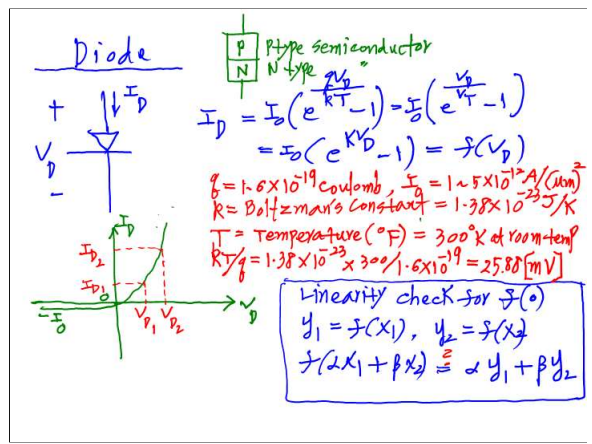 Diode
P P type semiconductor
N N type "
+ ↓ I_D
V_D
-
I_D = I_0(e^{qV_D/kT} - 1) = I_0(e^{V_D/V_T} - 1)
= I_0(e^{KV_D} - 1) = f(V_D)
q = 1.6×10^{-19} Coulomb, I_0 = 1~5×10^{-12} A/(μm)^2
k = Boltzman's Constant = 1.38×10^{-23} J/K
T = Temperature (°F) = 300°K at room temp
kT/q = 1.38×10^{-23} × 300/1.6×10^{-19} = 25.88 [mV]
I_D
I_{D2}
I_{D1}
0
-I_0
V_{D1} V_{D2} V_D
Linearity check for f(0)
y_1 = f(x_1), y_2 = f(x_2)
f(αx_1 + βx_2) ?= αy_1 + βy_2